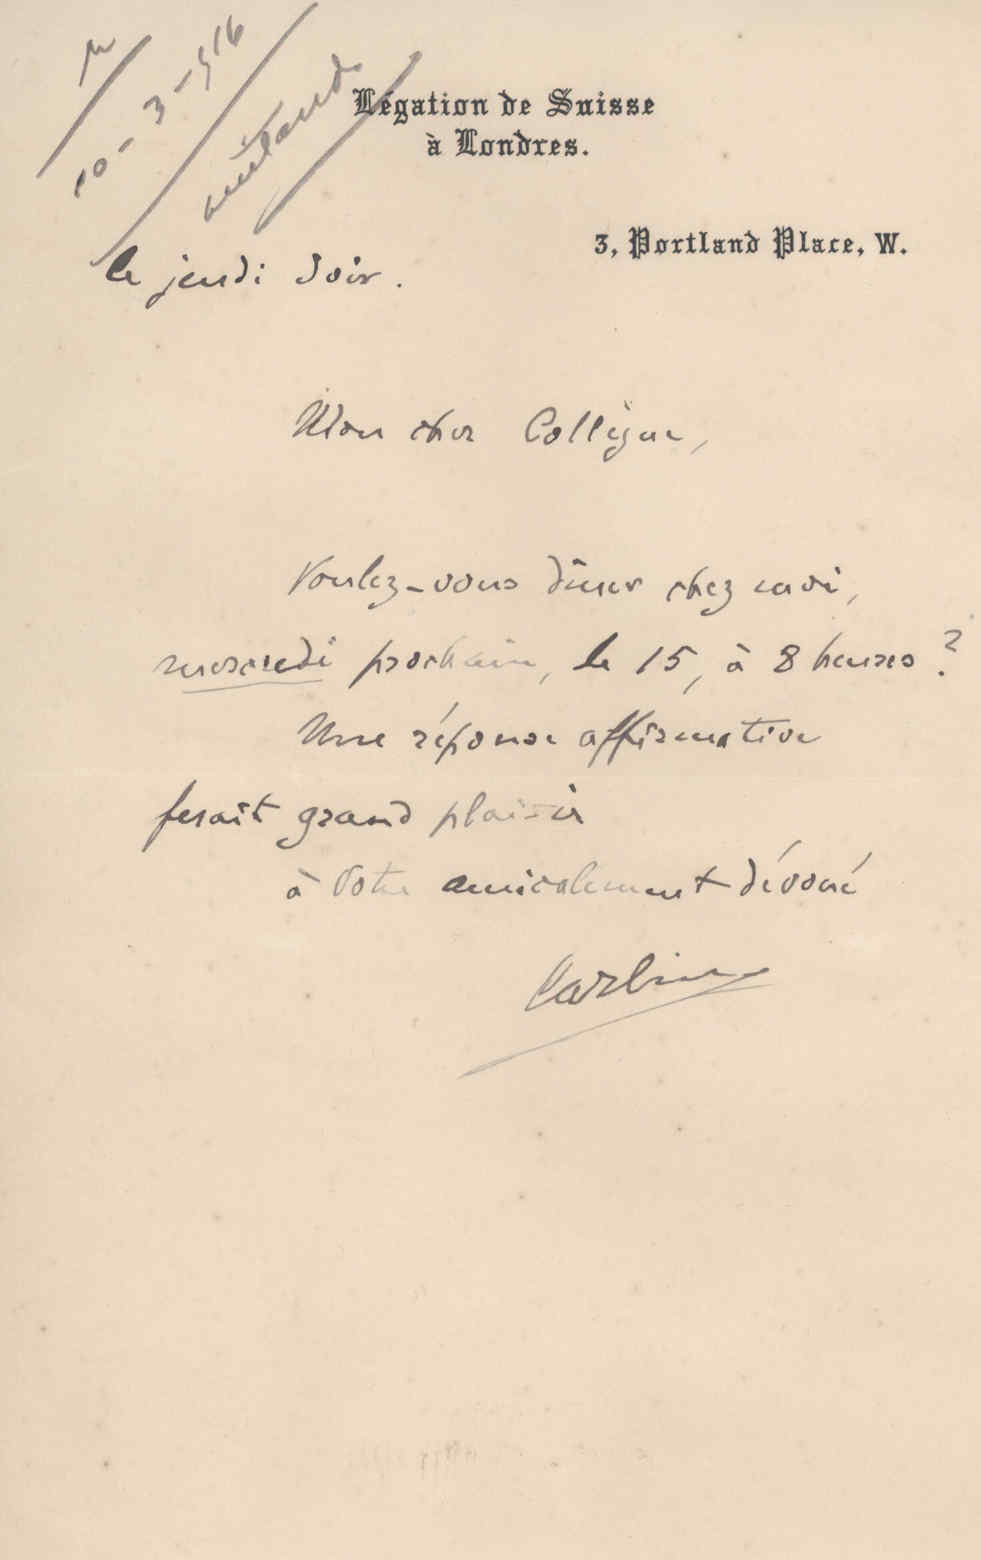 10-3-916
Légation de Suisse
à Londres.
3, Portland Place, W.
le jeudi soir.
Mon cher Collègue,
Voulez-vous dîner chez moi,
mercredi prochain, le 15, à 8 heures ?
Une réponse affirmative
ferait grand plaisir
à Votre amicalement dévoué
Carlin